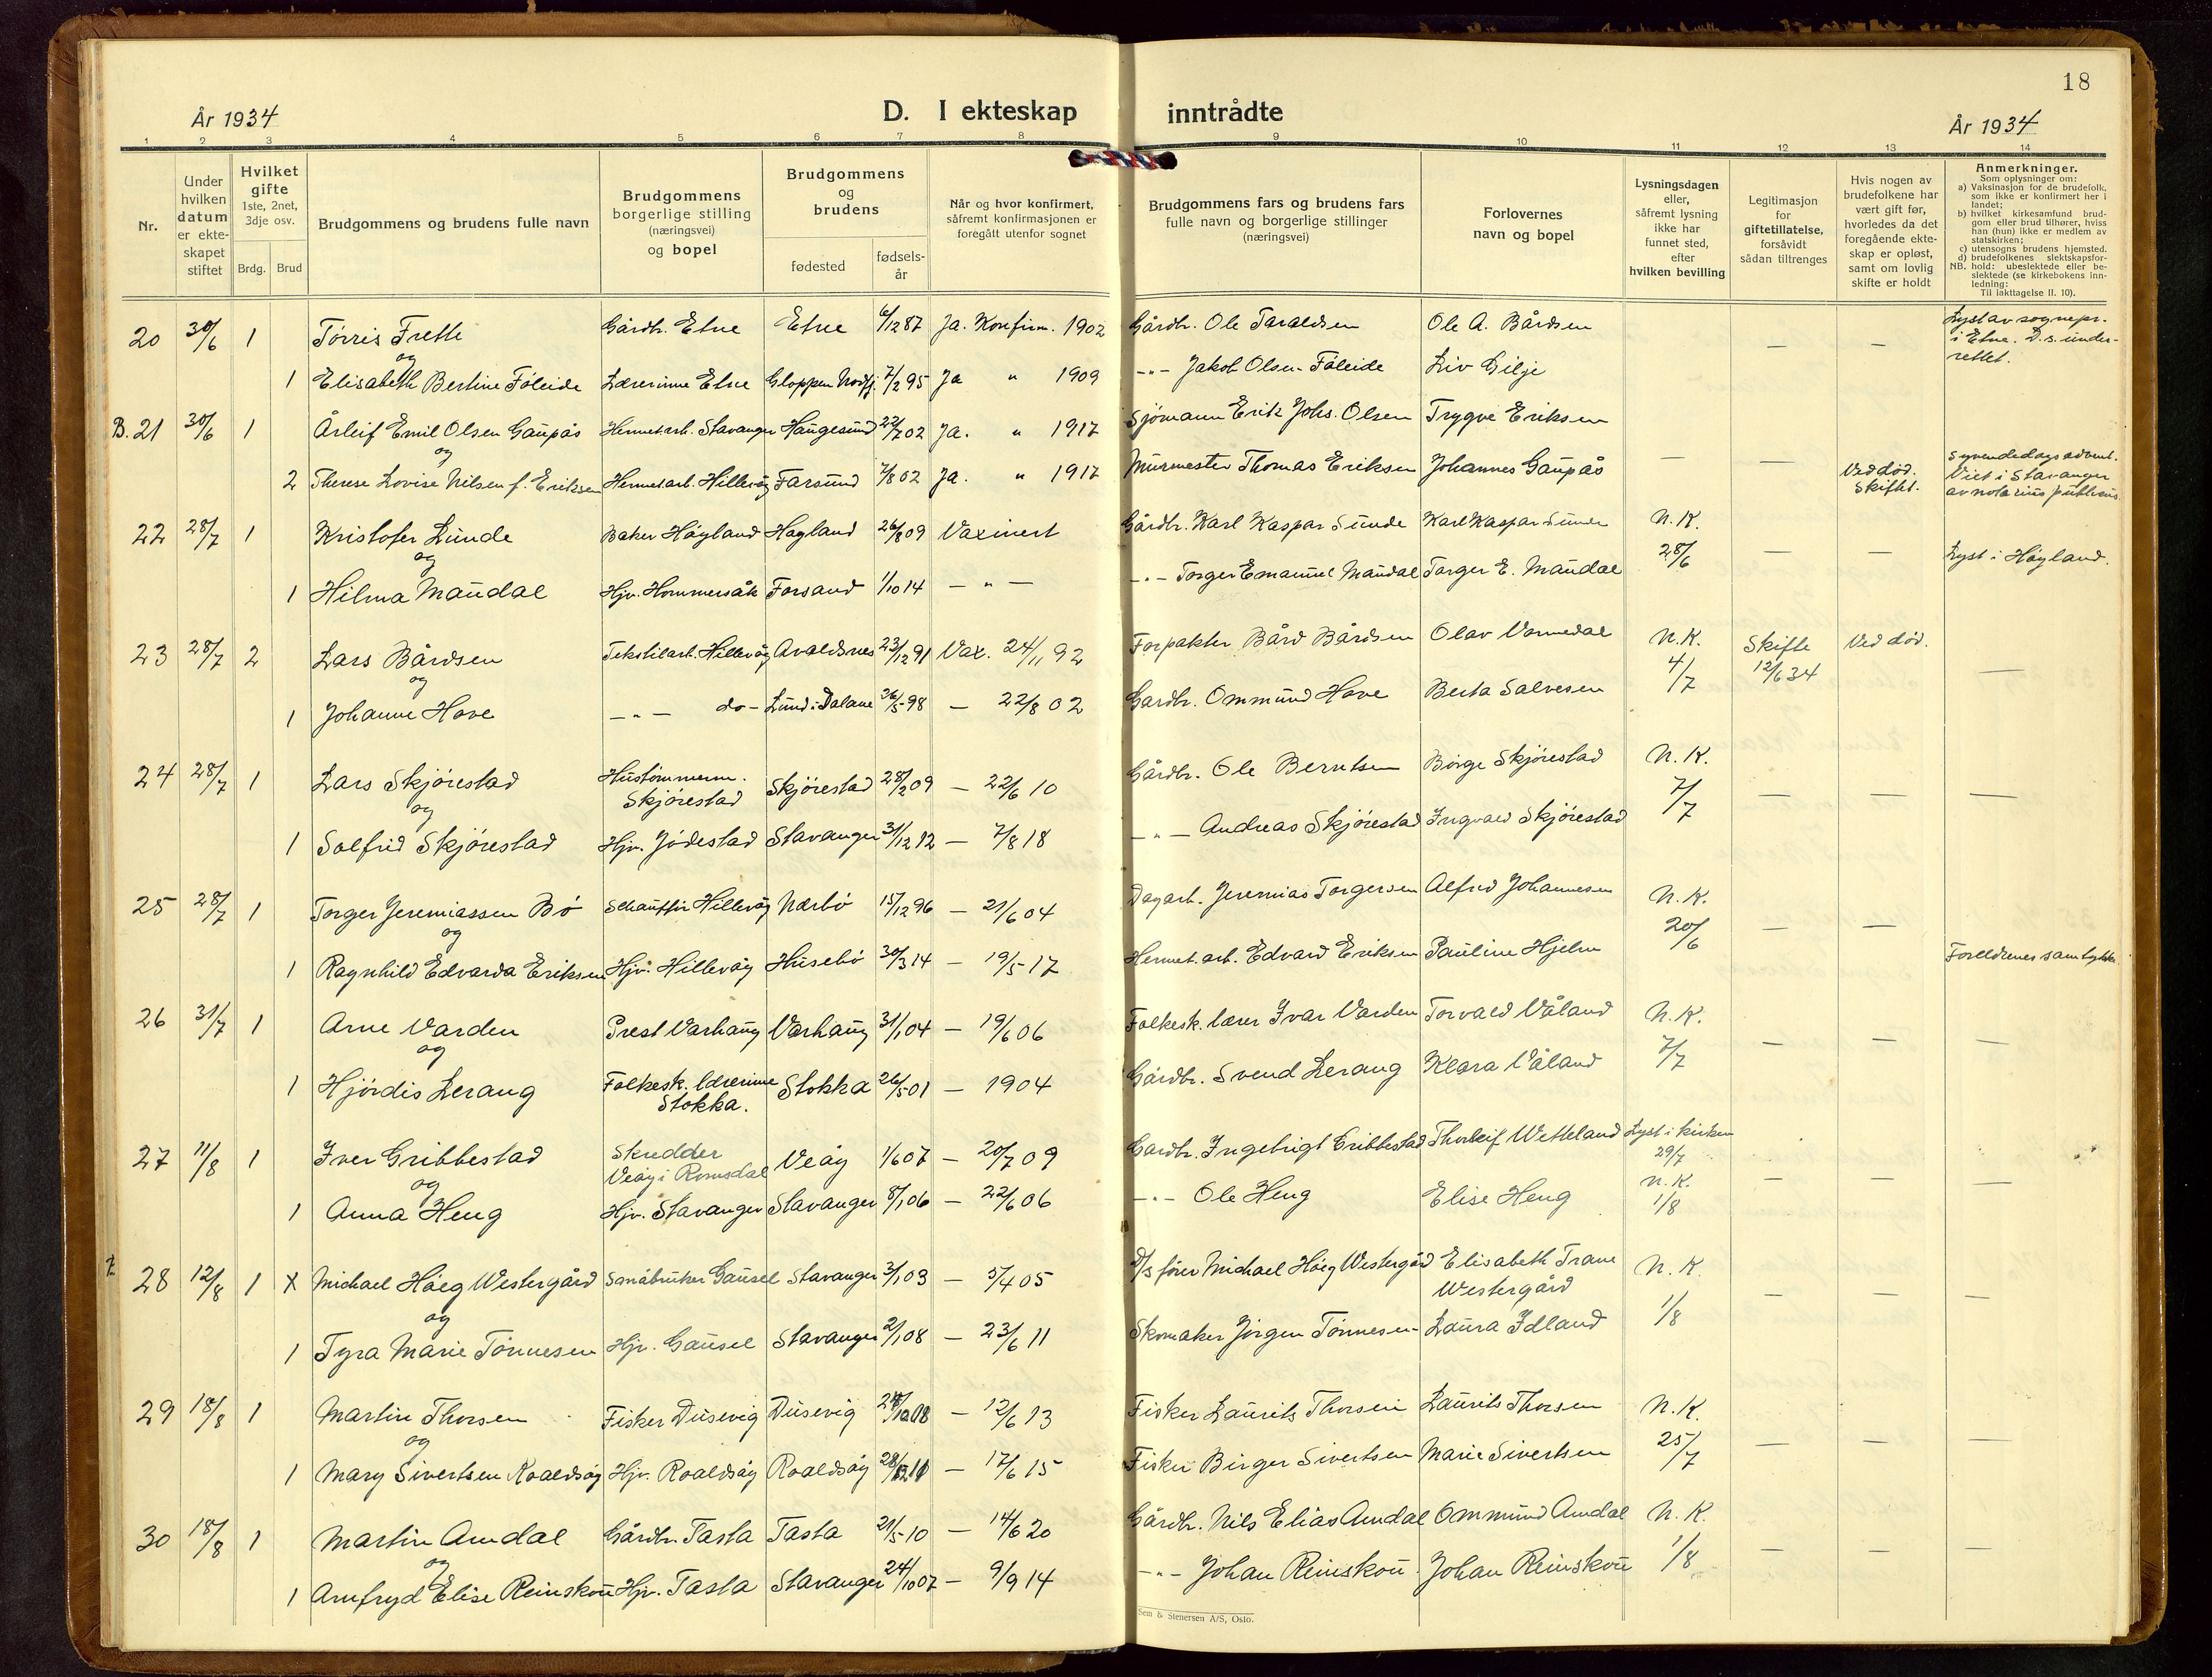 18
År 1934
D. I ekteskap inntrådte
År 1934
1 2 3 4 5 6 7 8 9 10 11 12 13 14
Nr.
Under hvilken datum er ekteskapet stiftet
Hvilket gifte 1ste, 2net, 3dje osv.
Brdg. Brud
Brudgommens og brudens fulle navn
Brudgommens borgerlige stilling (næringsvei) og bopel
Brudgommens og brudens
fødested
fødselsår
Når og hvor konfirmert, såfremt konfirmasjonen er foregått utenfor sognet
Brudgommens fars og brudens fars fulle navn og borgerlige stillinger (næringsvei)
Forlovernes navn og bopel
Lysningsdagen eller, såfremt lysning ikke har funnet sted, efter hvilken bevilling
Legitimasjon for giftetillatelse, forsåvidt sådan tiltrenges
Hvis nogen av brudefolkene har vært gift før, hvorledes da det foregående ekteskap er opløst, samt om lovlig skifte er holdt
Anmerkninger.
Som oplysninger om:
a) Vaksinasjon for de brudefolk, som ikke er konfirmert her i landet;
b) hvilket kirkesamfund brudgom eller brud tilhører, hviss han (hun) ikke er medlem av statskirken;
c) utensogns brudens hjemsted.
d) brudefolkenes slektskapsforhold: ubeslektede eller beslektede (se kirkebokens innledning:
NB. Til iakttagelse II. 10).
20 30/6 1 Tørris Frette Gårdbr. Etne Etne 6/12 87 Ja. Konfirm. 1902 Gårdbr. Ole Taraldsen Ole A. Bårdsen — — Lyst av sognepr. i Etne. D.s. underrettet.
og
1 Elisabeth Bertine Føleide Lærerinne Etne Gloppen Nordfj. 7/2 95 Ja " 1909 -"- Jakob Olsen Føleide Liv Gilje
B. 21 30/6 1 Årleif Emil Olsen Gaupås Hermet.arb. Stavanger Haugesund 22/7 02 Ja. " 1917 Sjømann Erik Johs. Olsen Trygve Eriksen
og
2 Therese Lovise Nilsen f. Eriksen Hermetarb. Hillevåg Farsund 7/8 02 Ja. " 1917 Murmester Thomas Eriksen Johannes Gaupås — — Ved død. Skiftet. Syvendedags advent. Viet i Stavanger av notarius publicus.
22 28/7 1 Kristofer Lunde Baker Høyland Høgland 26/8 09 Vaxinert Gårdbr. Karl Kaspar Sunde Karl Kaspar N.K. 28/6 — — Lyst i Høyland.
og
1 Hilma Maudal Hjv. Hommersåk Forsand 1/10 14 -"- -"- Torger Emanuel Maudal Torger E. Maudal
23 28/7 2 Lars Bårdsen Tekstilarb. Hillevåg Avaldsnes 23/12 91 Vax. 24/11 92 Forpakter Bård Bårdsen Olav Vormedal N.K. 4/7 Skifte 12/6 34 Ved død. —
og
1 Johanne Hove -"- do- Lund i Dalane 26/5 98 — 22/8 02 Gardbr. Ommund Hove Berta Salvesen
24 28/7 1 Lars Skjørestad Hustømmerm. Skjørestad Skjørestad 28/2 09 — 22/6 10 Gårdbr. Ole Berntsen Børge Skjørestad N.K. 7/7 — — —
og
1 Solfrid Skjørestad Hjv. Jødestad Stavanger 31/12 12 — 7/8 18 -"- Andreas Skjørestad Ingvald Skjørestad
25 28/7 1 Torger Jeremiassen Bø Schauffør Hillevåg Nærbø 15/12 96 — 21/6 04 Dagarb. Jeremias Torgersen Alfred Johannesen N.K. 20/6 — —
og
1 Ragnhild Edvarda Eriksen Hjv. Hillevåg Husebø 30/3 14 — 19/5 17 Hermet.arb. Edvard Eriksen Pauline Hjelm Foreldrenes samtykke.
26 31/7 1 Arne Varden Prest Varhaug Varhaug 31/1 04 — 19/6 06 Folkesk.lærer Ivar Varden Torvald Våland N.K. 7/7 — — —
og
1 Hjördis Lerang Folkesk. lærerinne Stokka. Stokka 26/5 01 — 1904 Gårdbr. Svend Lerang Klara Våland
27 11/8 1 Iver Gribbestad Skredder Veøy i Romsdal Veøy 1/6 07 — 20/7 09 Gardbr. Ingebrigt Gribbestad Thorleif Wetteland Lyst i kirken 29/7 N.K. 1/8 — — —
og
1 Anna Heng Hjv. Stavanger Stavanger 8/1 06 — 22/6 06 -"- Ole Heng Elise Heng
28 12/8 1 X Michael Høeg Westergård Småbruker Gausel Stavanger 3/1 03 — 5/4 05 D/s fører Michael Høeg Westergård Elisabeth Trane Westergård N.K. 1/8 — — —
og
1 Tyra Marie Tønnesen Hjv. Gausel Stavanger 2/1 08 — 23/6 11 Skomaker Jørgen Tönnesen Laura Idland
29 18/8 1 Martin Thorsen Fisker Dusevig Dusevig — 12/6 13 Fisker Laurits Thorsen Laurits Thorsen N.K. 25/7 — — —
og
1 Mary Sivertsen Roaldsøy Hjv. Roaldsøy Roaldsøy — 17/6 15 Fisker Birger Sivertsen Marie Sivertsen
30 18/8 1 Martin Amdal Gårdbr. Tasta Tasta 21/5 10 — 14/6 20 Gårdbr. Nils Elias Amdal Ommund Amdal N.K. 1/8 — — —
og
1 Arnfryd Elise Reinskou Hjv. Tasta Stavanger 24/10 07 — 9/9 14 -"- Johan Reinskou Johan Reinskou
Sem & Stenersen A/S, Oslo.